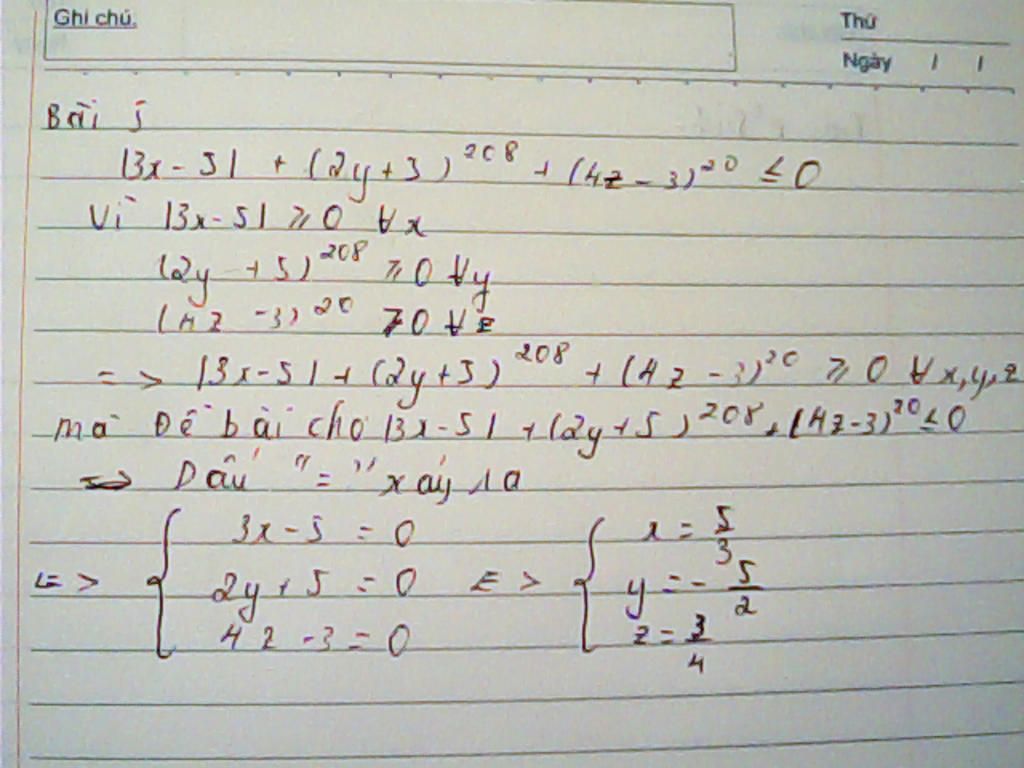 Ghi chú.
Thứ
Ngày / /
Bài 5
|3x - 5| + (2y + 5)²⁰⁸ + (4z - 3)²⁰ ≤ 0
Vì |3x - 5| ≥ 0 ∀x
(2y + 5)²⁰⁸ ≥ 0 ∀y
(4z - 3)²⁰ ≥ 0 ∀z
=> |3x - 5| + (2y + 5)²⁰⁸ + (4z - 3)²⁰ ≥ 0 ∀x,y,z
mà Đề bài cho |3x - 5| + (2y + 5)²⁰⁸ + (4z - 3)²⁰ ≤ 0
=> Dấu "=" xảy ra
<=> { 3x - 5 = 0 <=> { x = 5/3
2y + 5 = 0 y = - 5/2
4z - 3 = 0 z = 3/4